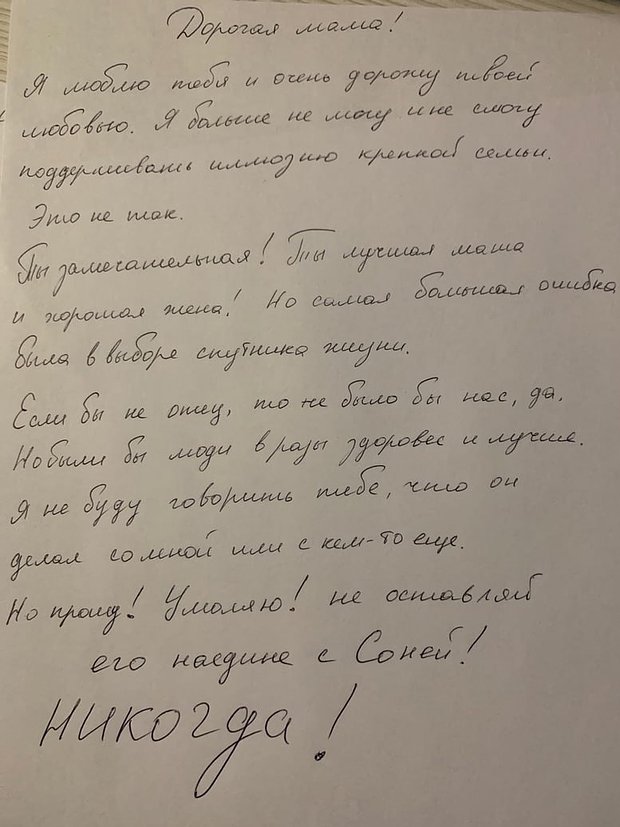 Дорогая мама!
Я люблю тебя и очень дорожу твоей
любовью. Я больше не могу и не смогу
поддерживать иллюзию крепкой семьи.
Это не так.
Ты замечательная! Ты лучшая мама
и хорошая жена! Но самая большая ошибка
была в выборе спутника жизни.
Если бы не отец, то не было бы нас, да.
Но были бы люди в разы здоровее и лучше.
Я не буду говорить тебе, что он
делал со мной или с кем-то еще.
Но прошу! Умоляю! не оставляй
его наедине с Соней!
НИКОГДА!